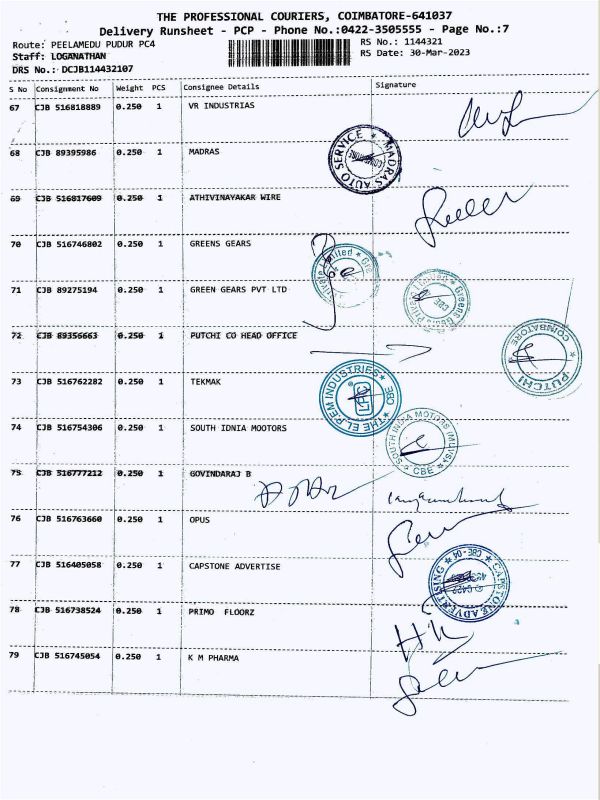 THE PROFESSIONAL COURIERS, COIMBATORE-641037
Delivery Runsheet - PCP - Phone No.:0422-3505555 - Page No.:7
Route: PEELAMEDU PUDUR PC4
RS No.: 1144321
Staff: LOGANATHAN
RS Date: 30-Mar-2023
DRS No.: DCJB114432107
S No Consignment No Weight PCS Consignee Details Signature
67 CJB 516818889 0.250 1 VR INDUSTRIAS
68 CJB 89395986 0.250 1 MADRAS
MADRAS AUTO SERVICE
69 CJB 516817609 0.250 1 ATHIVINAYAKAR WIRE
70 CJB 516746802 0.250 1 GREENS GEARS
71 CJB 89275194 0.250 1 GREEN GEARS PVT LTD
Greens Gears Private Limited CBE
72 CJB 89356663 0.250 1 PUTCHI CO HEAD OFFICE
PUTCHI COIMBATORE
73 CJB 516762282 0.250 1 TEKMAK
THE EL.PEM INDUSTRIES CBE
74 CJB 516754306 0.250 1 SOUTH IDNIA MOOTORS
SOUTH INDIA MOTORS CBE
75 CJB 516777212 0.250 1 GOVINDARAJ B
76 CJB 516763660 0.250 1 OPUS
77 CJB 516405058 0.250 1 CAPSTONE ADVERTISE
CAPSTONE ADVERTISING CBE-04
78 CJB 516738524 0.250 1 PRIMO FLOORZ
79 CJB 516745054 0.250 1 K M PHARMA